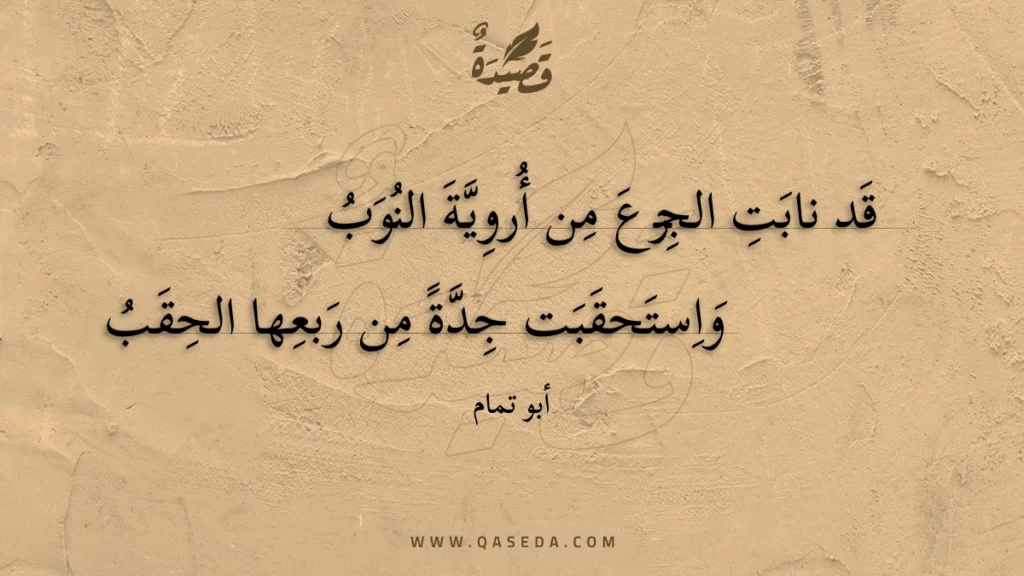 قَصِيدَةٌ
قَد نابَتِ الجِزعَ مِن أُروِيَّةَ النُوَبُ
وَاِستَحقَبَت جِدَّةً مِن رَبعِها الحِقَبُ
أبو تمام
WWW.QASEDA.COM